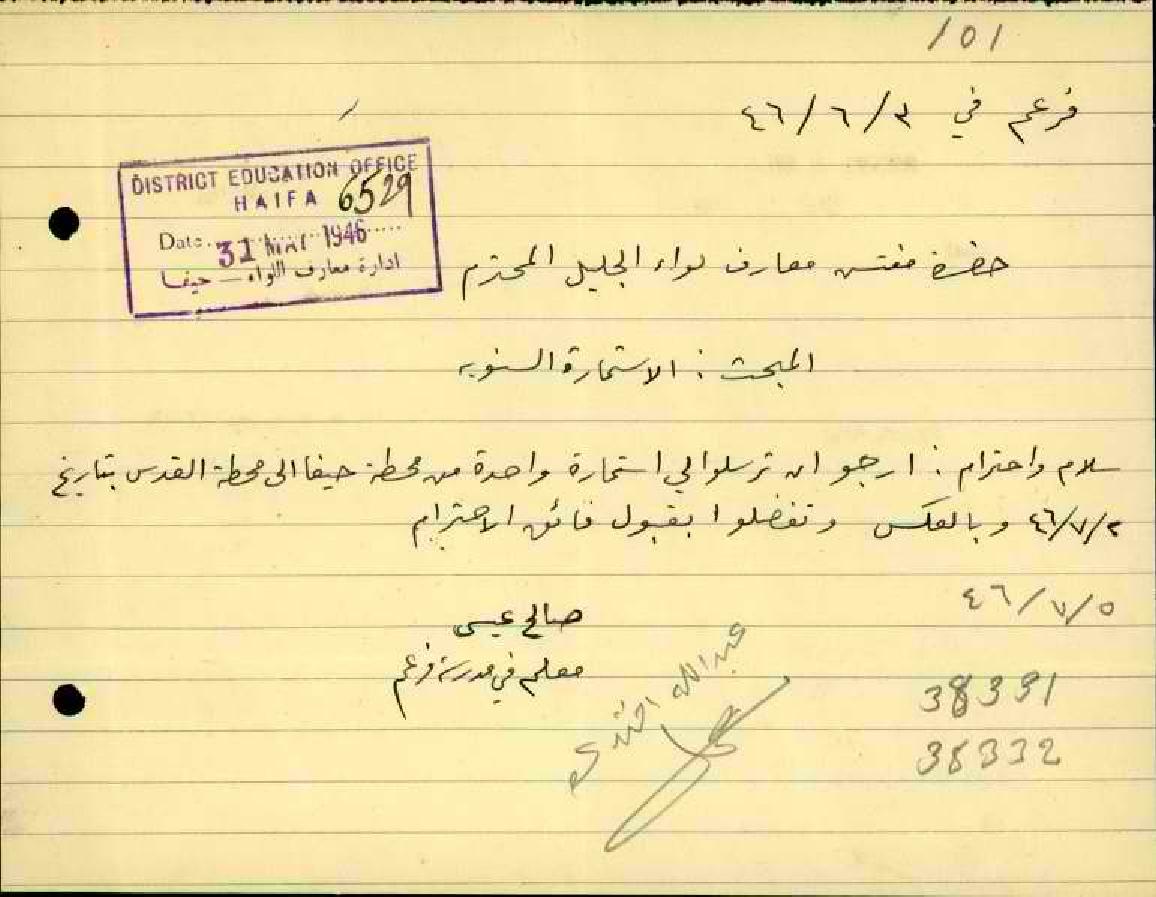 /01
فرعم في ٣/٦/٤٦
DISTRICT EDUCATION OFFICE
HAIFA 6529
Date 31 MAY 1946
ادارة معارف اللواء – حيفا
حضرة مفتش معارف لواء الجليل المحترم
المبحث : الاستمارة السنويه
سلام واحترام : ارجو ان ترسلوا لي استمارة واحدة من محطة حيفا الى محطة القدس بتاريخ
٢/٧/٤٦ وبالعكس وتفضلوا بقبول فائق الاحترام
٥/٧/٤٦
صالح عيسى
معلم في مدرسة فرعم
عبدالله افندي
38331
38332